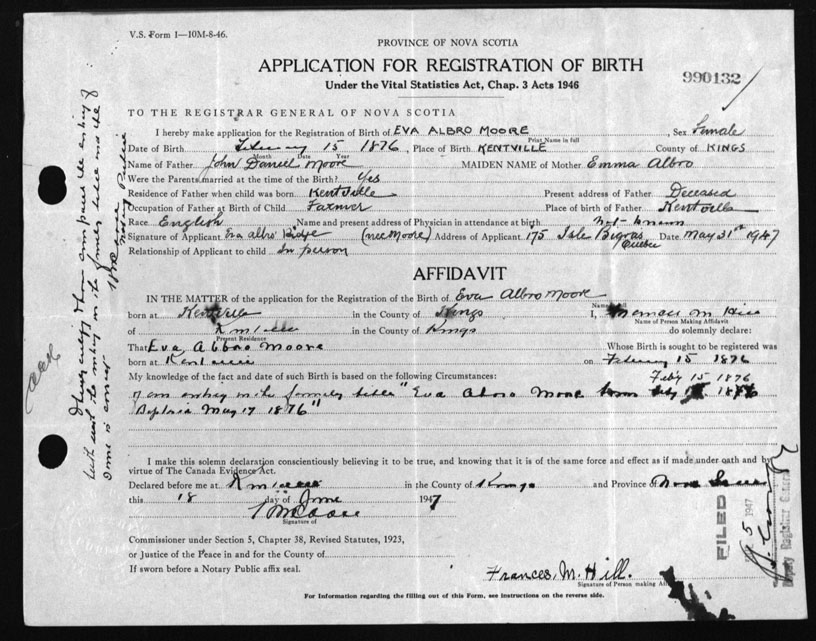 V.S. Form 1—10M-8-46.
PROVINCE OF NOVA SCOTIA
APPLICATION FOR REGISTRATION OF BIRTH
Under the Vital Statistics Act, Chap. 3 Acts 1946
990132
TO THE REGISTRAR GENERAL OF NOVA SCOTIA
I hereby make application for the Registration of Birth of EVA ALBRO MOORE, Sex Female
Print Name in full
Date of Birth February 15 1876, Place of Birth KENTVILLE County of KINGS
Month Date Year
Name of Father John Daniel Moore MAIDEN NAME of Mother Emma Albro
Were the Parents married at the time of the Birth? Yes
Residence of Father when child was born Kentville Present address of Father Deceased
Occupation of Father at Birth of Child Farmer Place of birth of Father Kentville
Race English Name and present address of Physician in attendance at birth not known
Signature of Applicant Eva Albro (nee Moore) Address of Applicant 175 Isle Bigras Quebec Date May 31st 1947
Relationship of Applicant to child In person
AFFIDAVIT
IN THE MATTER of the application for the Registration of the Birth of Eva Albro Moore
born at Kentville in the County of Kings I, Frances M Hill
Name of Person Making Affidavit
of Kentville in the County of Kings do solemnly declare:
Present Residence
That Eva Albro Moore Whose Birth is sought to be registered was
born at Kentville on February 15 1876
My knowledge of the fact and date of such Birth is based on the following Circumstances:
Feby 15 1876
entry in the family bible "Eva Albro Moore born Feby 1876
Baptised May 17 1876"
I make this solemn declaration conscientiously believing it to be true, and knowing that it is of the same force and effect as if made under oath and by
virtue of The Canada Evidence Act.
Declared before me at Kentville in the County of Kings and Province of Nova Scotia
this 18 day of June 1947
Signature of
Commissioner under Section 5, Chapter 38, Revised Statutes, 1923,
or Justice of the Peace in and for the County of
If sworn before a Notary Public affix seal.
Frances, M. Hill.
Signature of Person making Aff
For Information regarding the filling out of this Form, see instructions on the reverse side.
FILED
5 1947
Deputy Registrar General
I hereby certify I have compared the entry of
birth with the entry in the family bible and the
same is correct
Notary Public